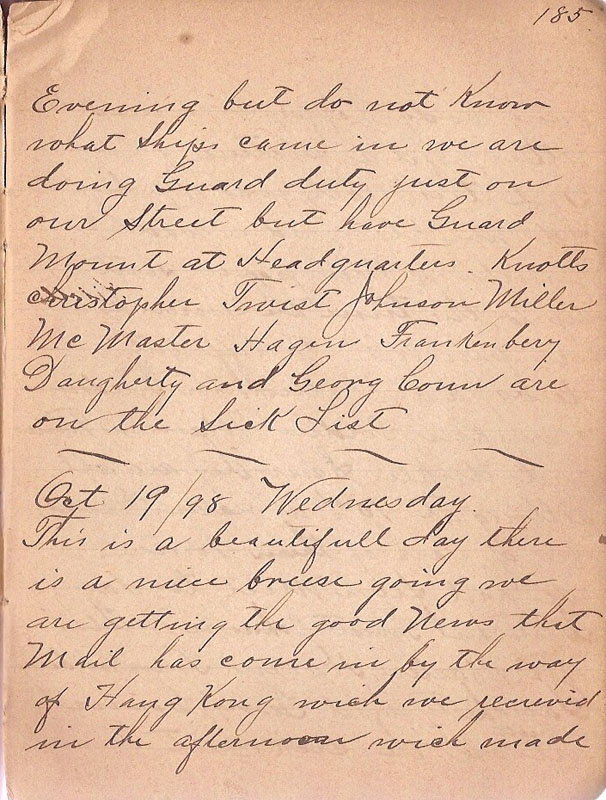 185.
Evening but do not Know
what Ships came in we are
doing Guard duty just on
our Street but have Guard
Mount at Headquarters. Knotts
Christopher Twist Johnson Miller
McMaster Hagen Frankenbery
Daugherty and Georg Conn are
on the Sick List
Oct 19/98 Wednesday.
This is a beautifull day there
is a niece breese going we
are getting the good News that
Mail has come in by the way
of Hang Kong wich we recieved
in the afternoon wich made